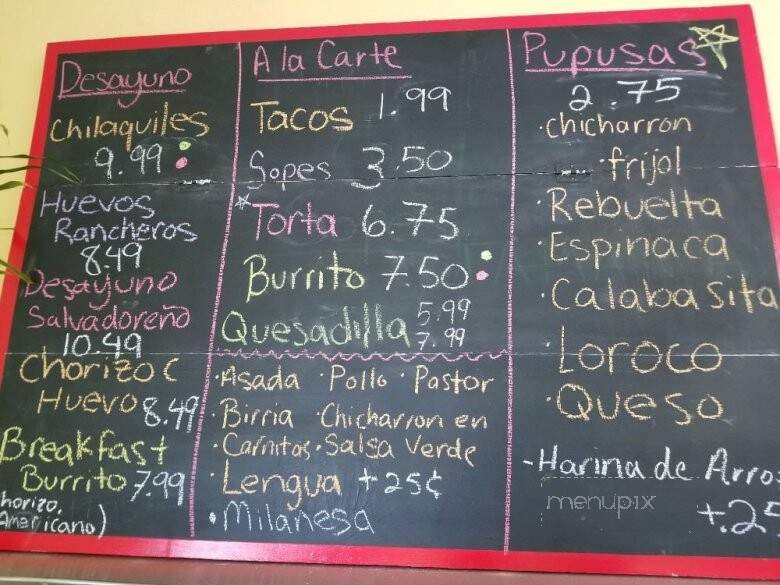 Desayuno
Chilaquiles
9.99
Huevos
Rancheros
8.49
Desayuno
Salvadoreño
10.49
Chorizo C
Huevo 8.49
Breakfast
Burrito 7.99
horizo,
Americano)
A la Carte
Tacos 1.99
Sopes 3.50
Torta 6.75
Burrito 7.50
Quesadilla 5.99
7.99
· Asada · Pollo · Pastor
· Birria · Chicharron en
· Carnitas · Salsa Verde
· Lengua +25¢
· Milanesa
Pupusas
2.75
· chicharron
· frijol
· Rebuelta
· Espinaca
· Calabasita
· Loroco
· Queso
- Harina de Arro
+.25
menupix